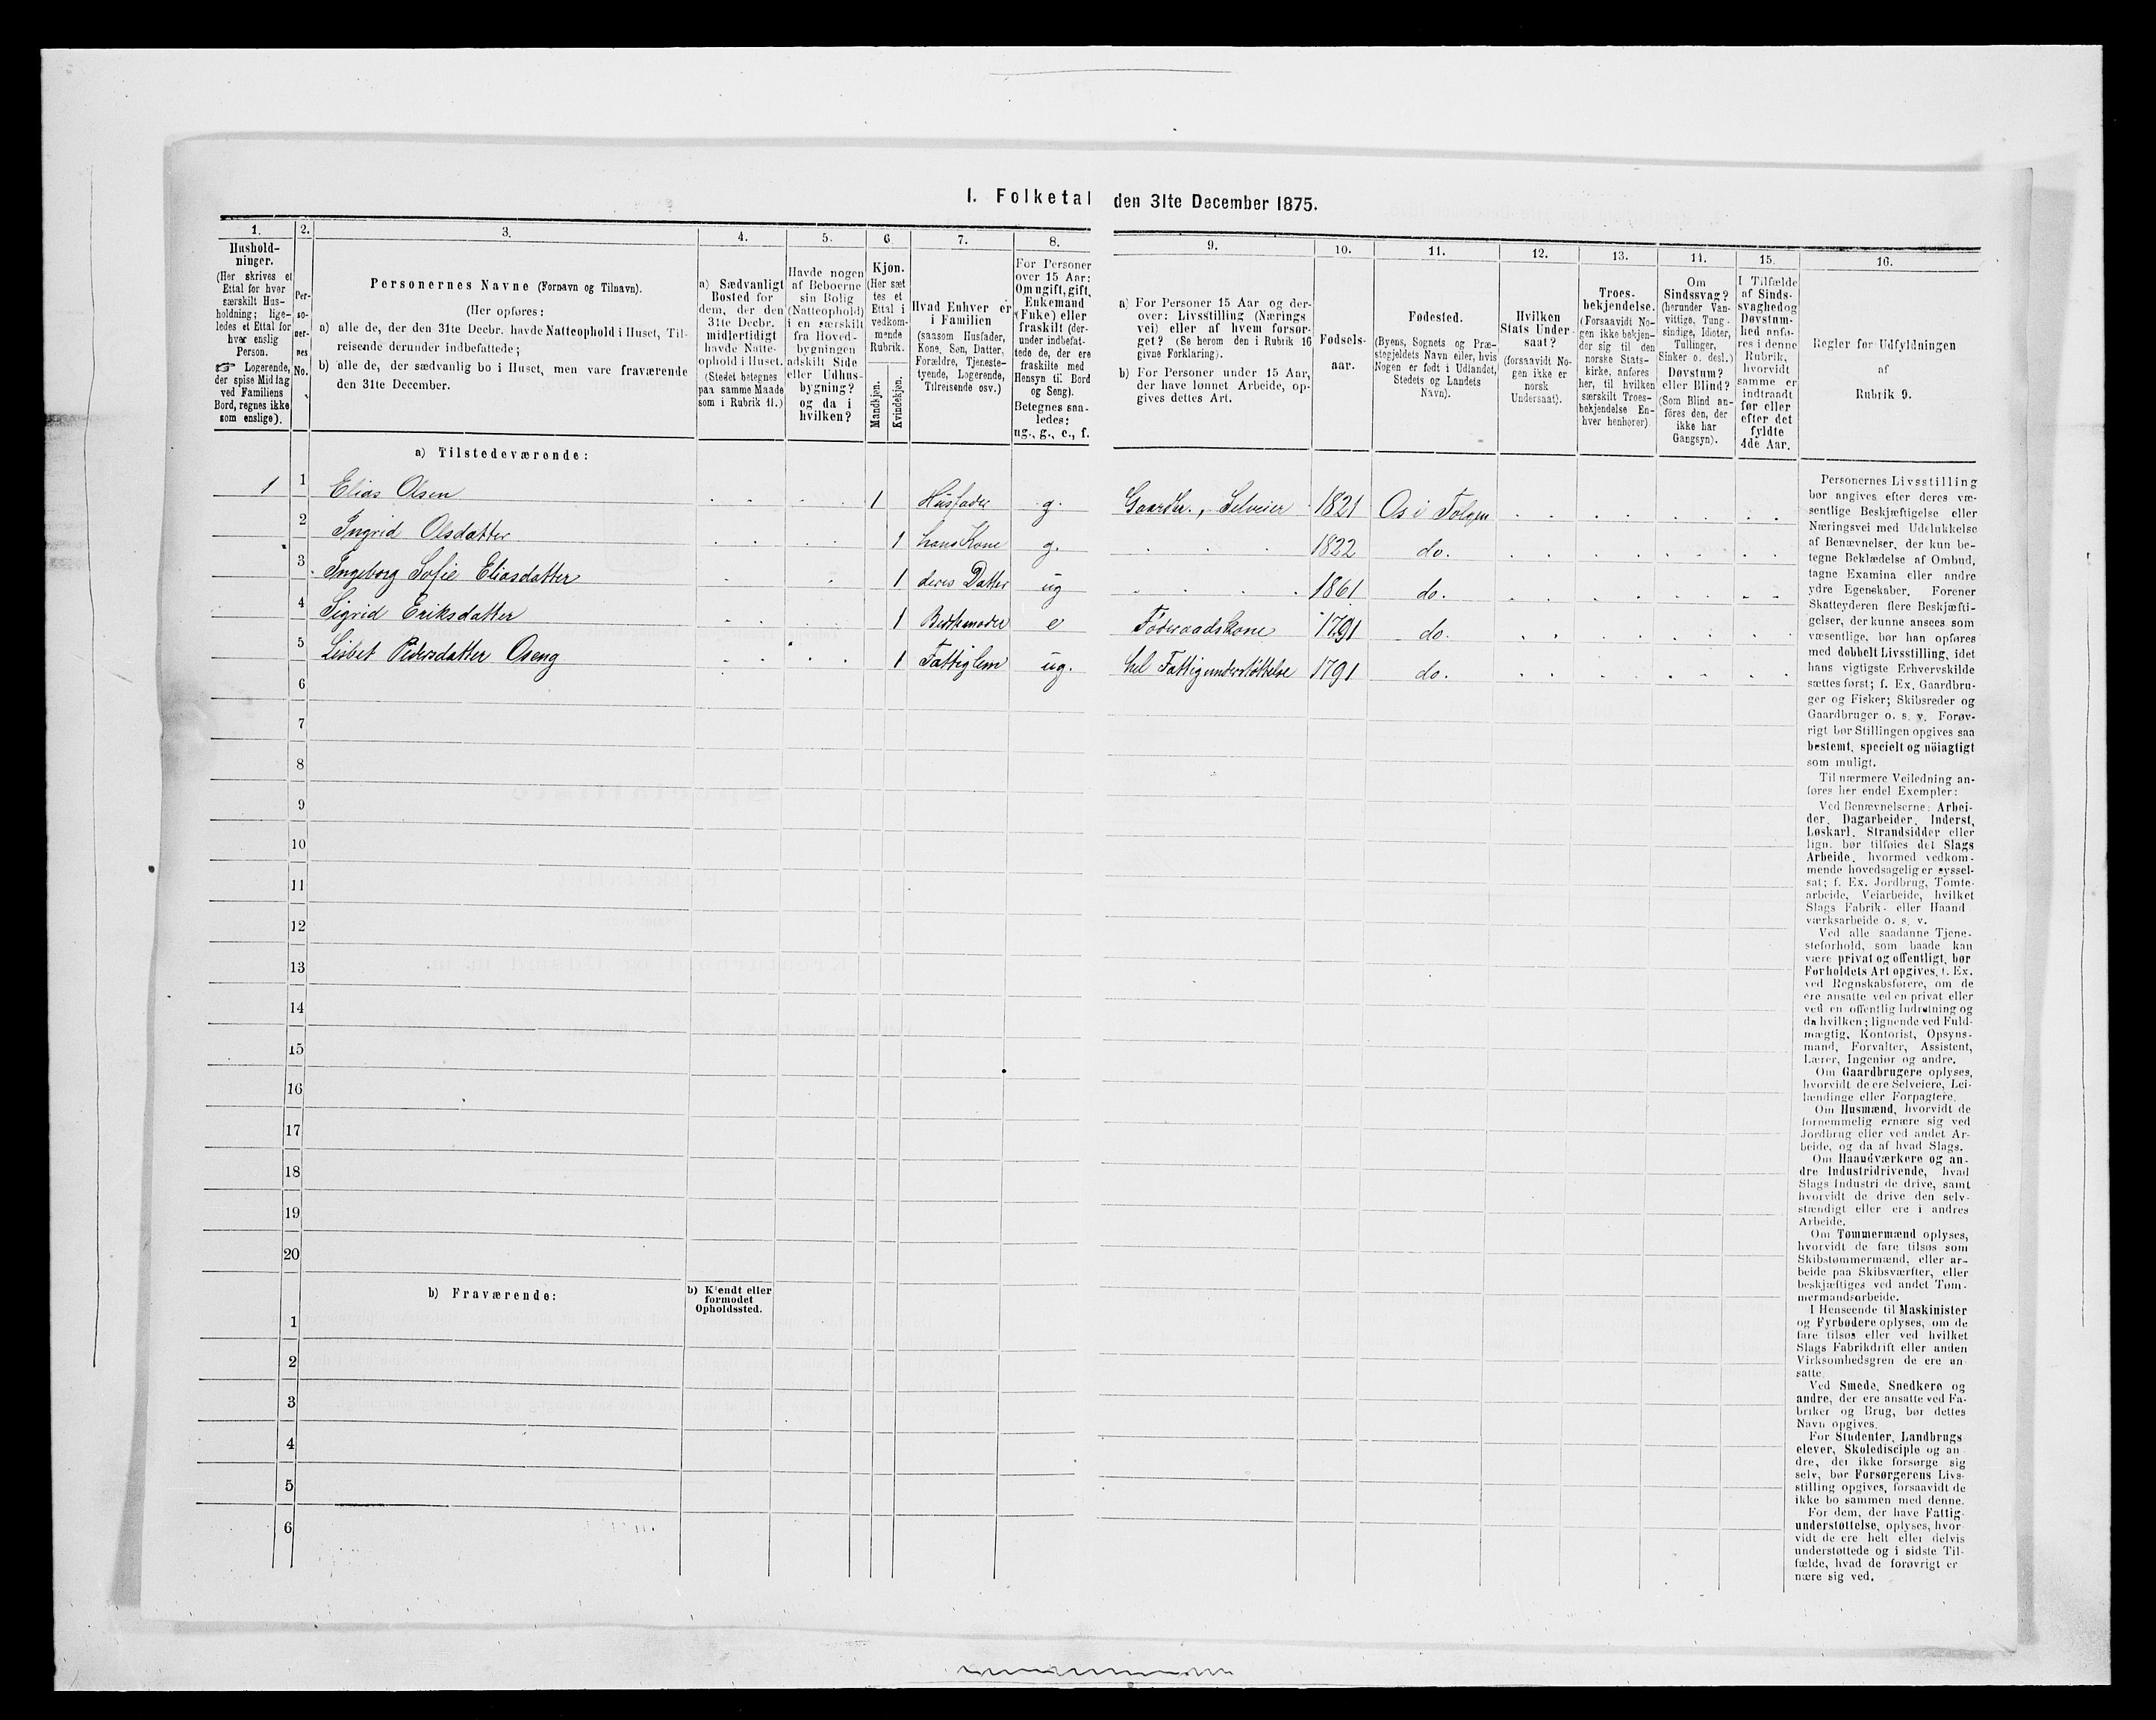 I. Folketal den 31te December 1875.
1.
Hushold-
ninger.
(Her skrives et
Ettal for hver
særskilt Hus-
holdning; lige-
ledes et Ettal for
hver enslig
Person.
☞ Logerende,
der spise Middag
ved Familiens
Bord, regnes ikke
som enslige).
2.
Per-
so-
ner-
nes
No.
3.
Personernes Navne (Fornavn og Tilnavn).
(Her opføres:
a) alle de, der den 31te Decbr. havde Natteophold i Huset, Til-
reisende derunder indbefattede;
b) alle de, der sædvanlig bo i Huset, men vare fraværende
den 31te December.
4.
a) Sædvanligt
Bosted for
dem, der den
31te Decbr.
midlertidigt
havde Natte-
ophold i Huset.
(Stedet betegnes
paa samme Maade
som i Rubrik 11.)
5.
Havde nogen
af Beboerne
sin Bolig
(Natteophold)
i en særskilt
fra Hoved-
bygningen
adskilt Side
eller Udhus-
bygning?
og da i
hvilken?
6
Kjøn.
(Her sæt
tes et
Ettal i
vedkom-
mende
Rubrik.
Mandkjøn.
Kvindekjøn.
7.
Hvad Enhver er
i Familien
(saasom Husfader,
Kone, Søn, Datter,
Forældre, Tjeneste-
tyende, Logerende,
Tilreisende osv.)
8.
For Personer
over 15 Aar:
Om ugift, gift,
Enkemand
(Enke) eller
fraskilt (der-
under indbefat-
tede de, der ere
fraskilte med
Hensyn til Bord
og Seng).
Betegnes saa-
ledes:
ug., g., e., f.
9.
a) For Personer 15 Aar og der-
over: Livsstilling (Nærings
vei) eller af hvem forsør-
get? (Se herom den i Rubrik 16
givne Forklaring).
b) For Personer under 15 Aar,
der have lønnet Arbeide, op-
gives dettes Art.
10.
Fødsels-
aar.
11.
Fødested.
(Byens, Sognets og Præ-
stegjeldets Navn eller, hvis
Nogen er født i Udlandet,
Stedets og Landets
Navn).
12.
Hvilken
Stats Under-
saat?
(forsaavidt No-
gen ikke er
norsk
Undersaat).
13.
Troes-
bekjendelse.
(Forsaavidt No-
gen ikke bekjen-
der sig til den
norske Stats-
kirke, anføres
her, til hvilken
særskilt Troes-
bekjendelse En-
hver henhører)
14.
Om
Sindssvag?
(herunder Van-
vittige, Tung-
sindige, Idioter,
Tullinger,
Sinker o. desl.)
Døvstum?
eller Blind?
(Som Blind an-
føres den, der
ikke har
Gangsyn).
15.
I Tilfælde
af Sinds-
svaghed og
Døvstum-
hed anfø-
res i denne
Rubrik,
hvorvidt
samme er
indtraadt
før eller
efter det
fyldte
4de Aar.
16.
Regler for Udfyldningen
af
Rubrik 9.
a) Tilstedeværende:
1 1 Elias Olsen 1 Husfader g. Gaardbr., Selveier 1821 Os i Tolgen
2 Ingrid Olsdatter 1 hans Kone g. 1822 do.
3 Ingeborg Sofie Eliasdatter 1 deres Datter ug 1861 do.
4 Sigrid Eriksdatter 1 Bedstemoder e Føderaadskone 1791 do.
5 Lisbet Pedersdatter Oseng 1 Fattiglem ug. hel Fattigunderstøttelse 1791 do.
6
7
8
9
10
11
12
13
14
15
16
17
18
19
20
b) Fraværende:
b) Kjendt eller
formodet
Opholdssted.
1
2
3
4
5
6
Personernes Livsstilling
bør angives efter deres væ-
sentlige Beskjæftigelse eller
Næringsvei med Udelukkelse
af Benævnelser, der kun be-
tegne Beklædelse af Ombud,
tagne Examina eller andre
ydre Egenskaber. Forener
Skatteyderen flere Beskjæfti-
gelser, der kunne ansees som
væsentlige, bør han opføres
med dobbelt Livsstilling, idet
hans vigtigste Erhvervskilde
sættes først; f. Ex. Gaardbru-
ger og Fisker; Skibsreder og
Gaardbruger o. s. v. Forøv-
rigt bør Stillingen opgives saa
bestemt, specielt og nöiagtigt
som muligt.
Til nærmere Veiledning an-
føres her endel Exempler:
Ved Benævnelserne: Arbei-
der, Dagarbeider, Inderst,
Løskarl, Strandsidder eller
lign. bør tilføies det Slags
Arbeide, hvormed vedkom-
mende hovedsagelig er syssel-
sat; f. Ex. Jordbrug, Tomte-
arbeide, Veiarbeide, hvilket
Slags Fabrik- eller Haand
værksarbeide o. s. v.
Ved alle saadanne Tjene-
steforhold, som baade kan
være privat og offentligt, bør
Forholdets Art opgives, f. Ex.
ved Regnskabsførere, om de
ere ansatte ved en privat eller
ved en offentlig Indretning og
da hvilken; lignende ved Fuld-
mægtig, Kontorist, Opsyns-
mand, Forvalter, Assistent,
Lærer, Ingeniør og andre.
Om Gaardbrugere oplyses,
hvorvidt de ere Selveiere, Lei-
lændinge eller Forpagtere.
Om Husmænd, hvorvidt de
fornemmelig ernære sig ved
Jordbrug eller ved andet Ar-
beide, og da af hvad Slags.
Om Haandværkere og an-
dre Industridrivende, hvad
Slags Industri de drive, samt
hvorvidt de drive den selv-
stændigt eller ere i andres
Arbeide.
Om Tømmermænd oplyses,
hvorvidt de fare tilsøs som
Skibstømmermænd, eller ar-
beide paa Skibsværfter, eller
beskjæftiges ved andet Tøm-
mermandsarbeide.
I Henseende til Maskinister
og Fyrbødere oplyses, om de
fare tilsøs eller ved hvilket
Slags Fabrikdrift eller anden
Virksomhedsgren de ere an-
satte.
Ved Smede, Snedkere og
andre, der ere ansatte ved Fa-
briker og Brug, bør dettes
Navn opgives.
For Studenter, Landbrugs
elever, Skoledisciple og an
dre, der ikke forsørge sig
selv, bør Forsørgerens Livs-
stilling opgives, forsaavidt de
ikke bo sammen med denne.
For dem, der have Fattig-
understøttelse, oplyses, hvor-
vidt de ere helt eller delvis
understøttede og i sidste Til-
fælde, hvad de forøvrigt er
nære sig ved.